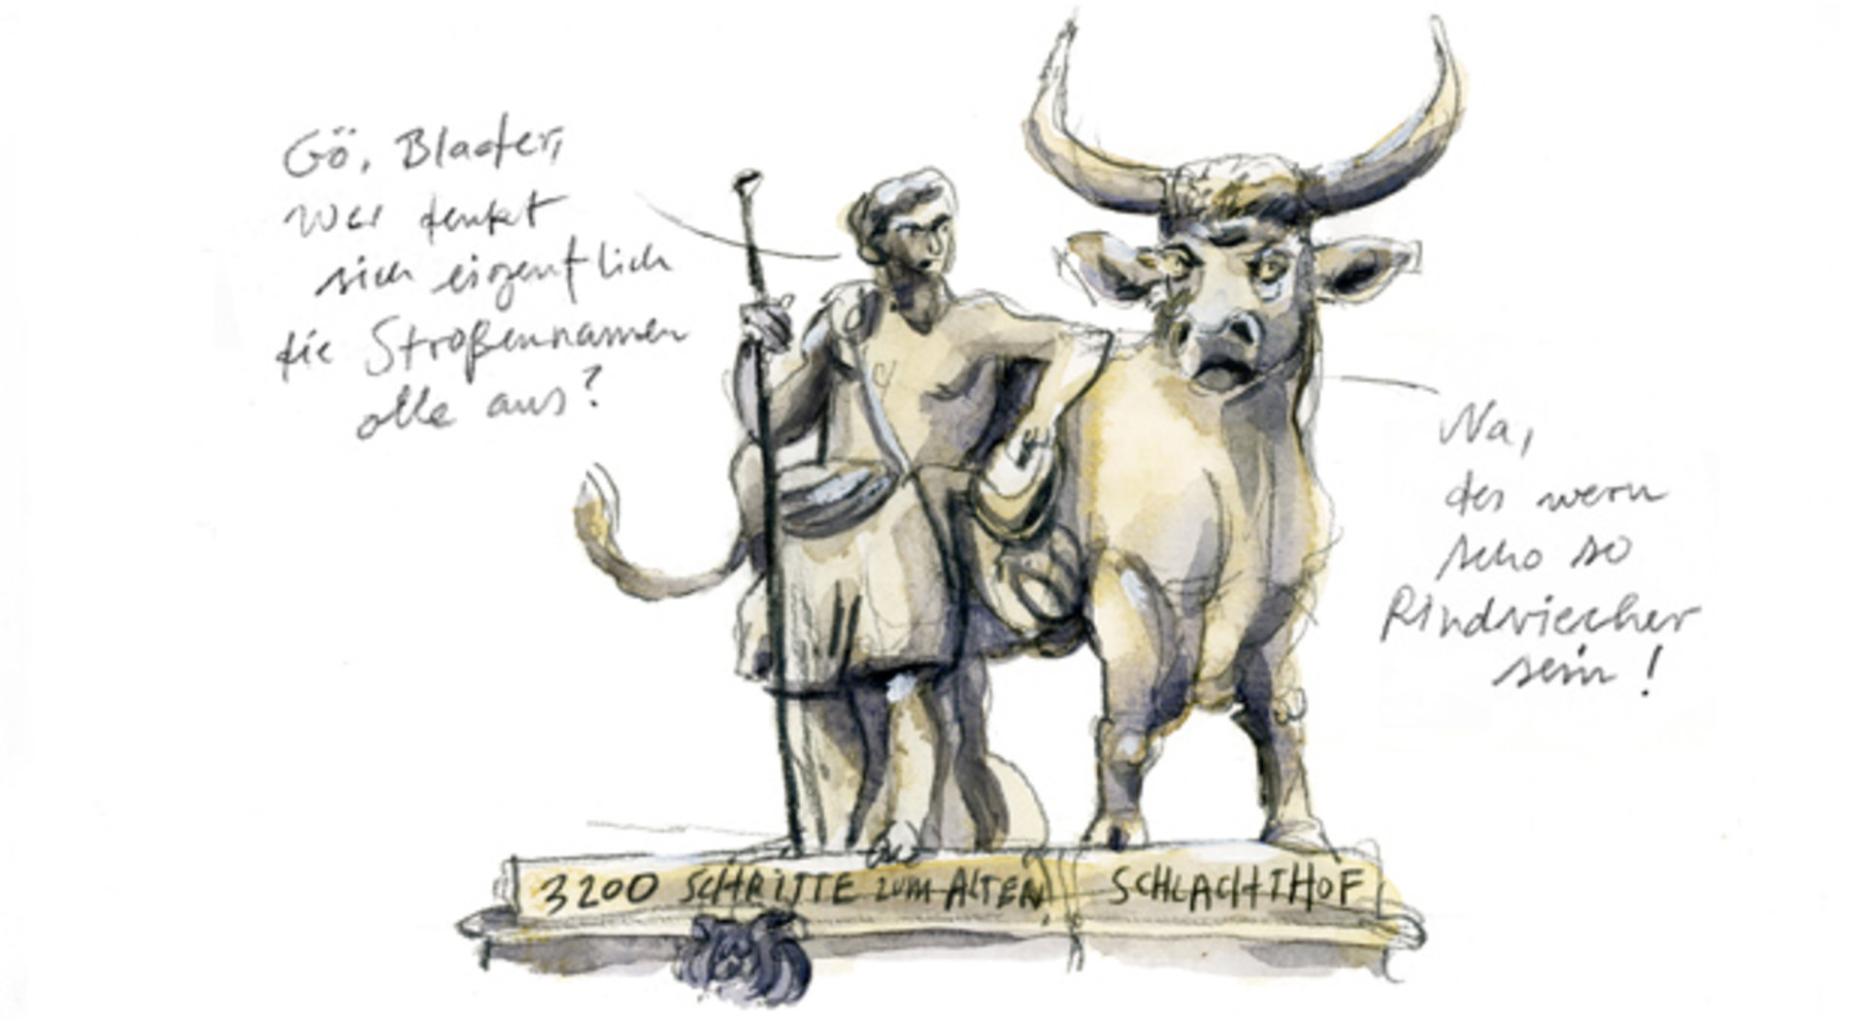 Gö, Blader,
wer denkt
sich eigentlich
die Straßennamen
alle aus?
Na,
des wern
scho so
Rindviecher
sein!
3200 SCHRITTE ZUM ALTEN SCHLACHTHOF